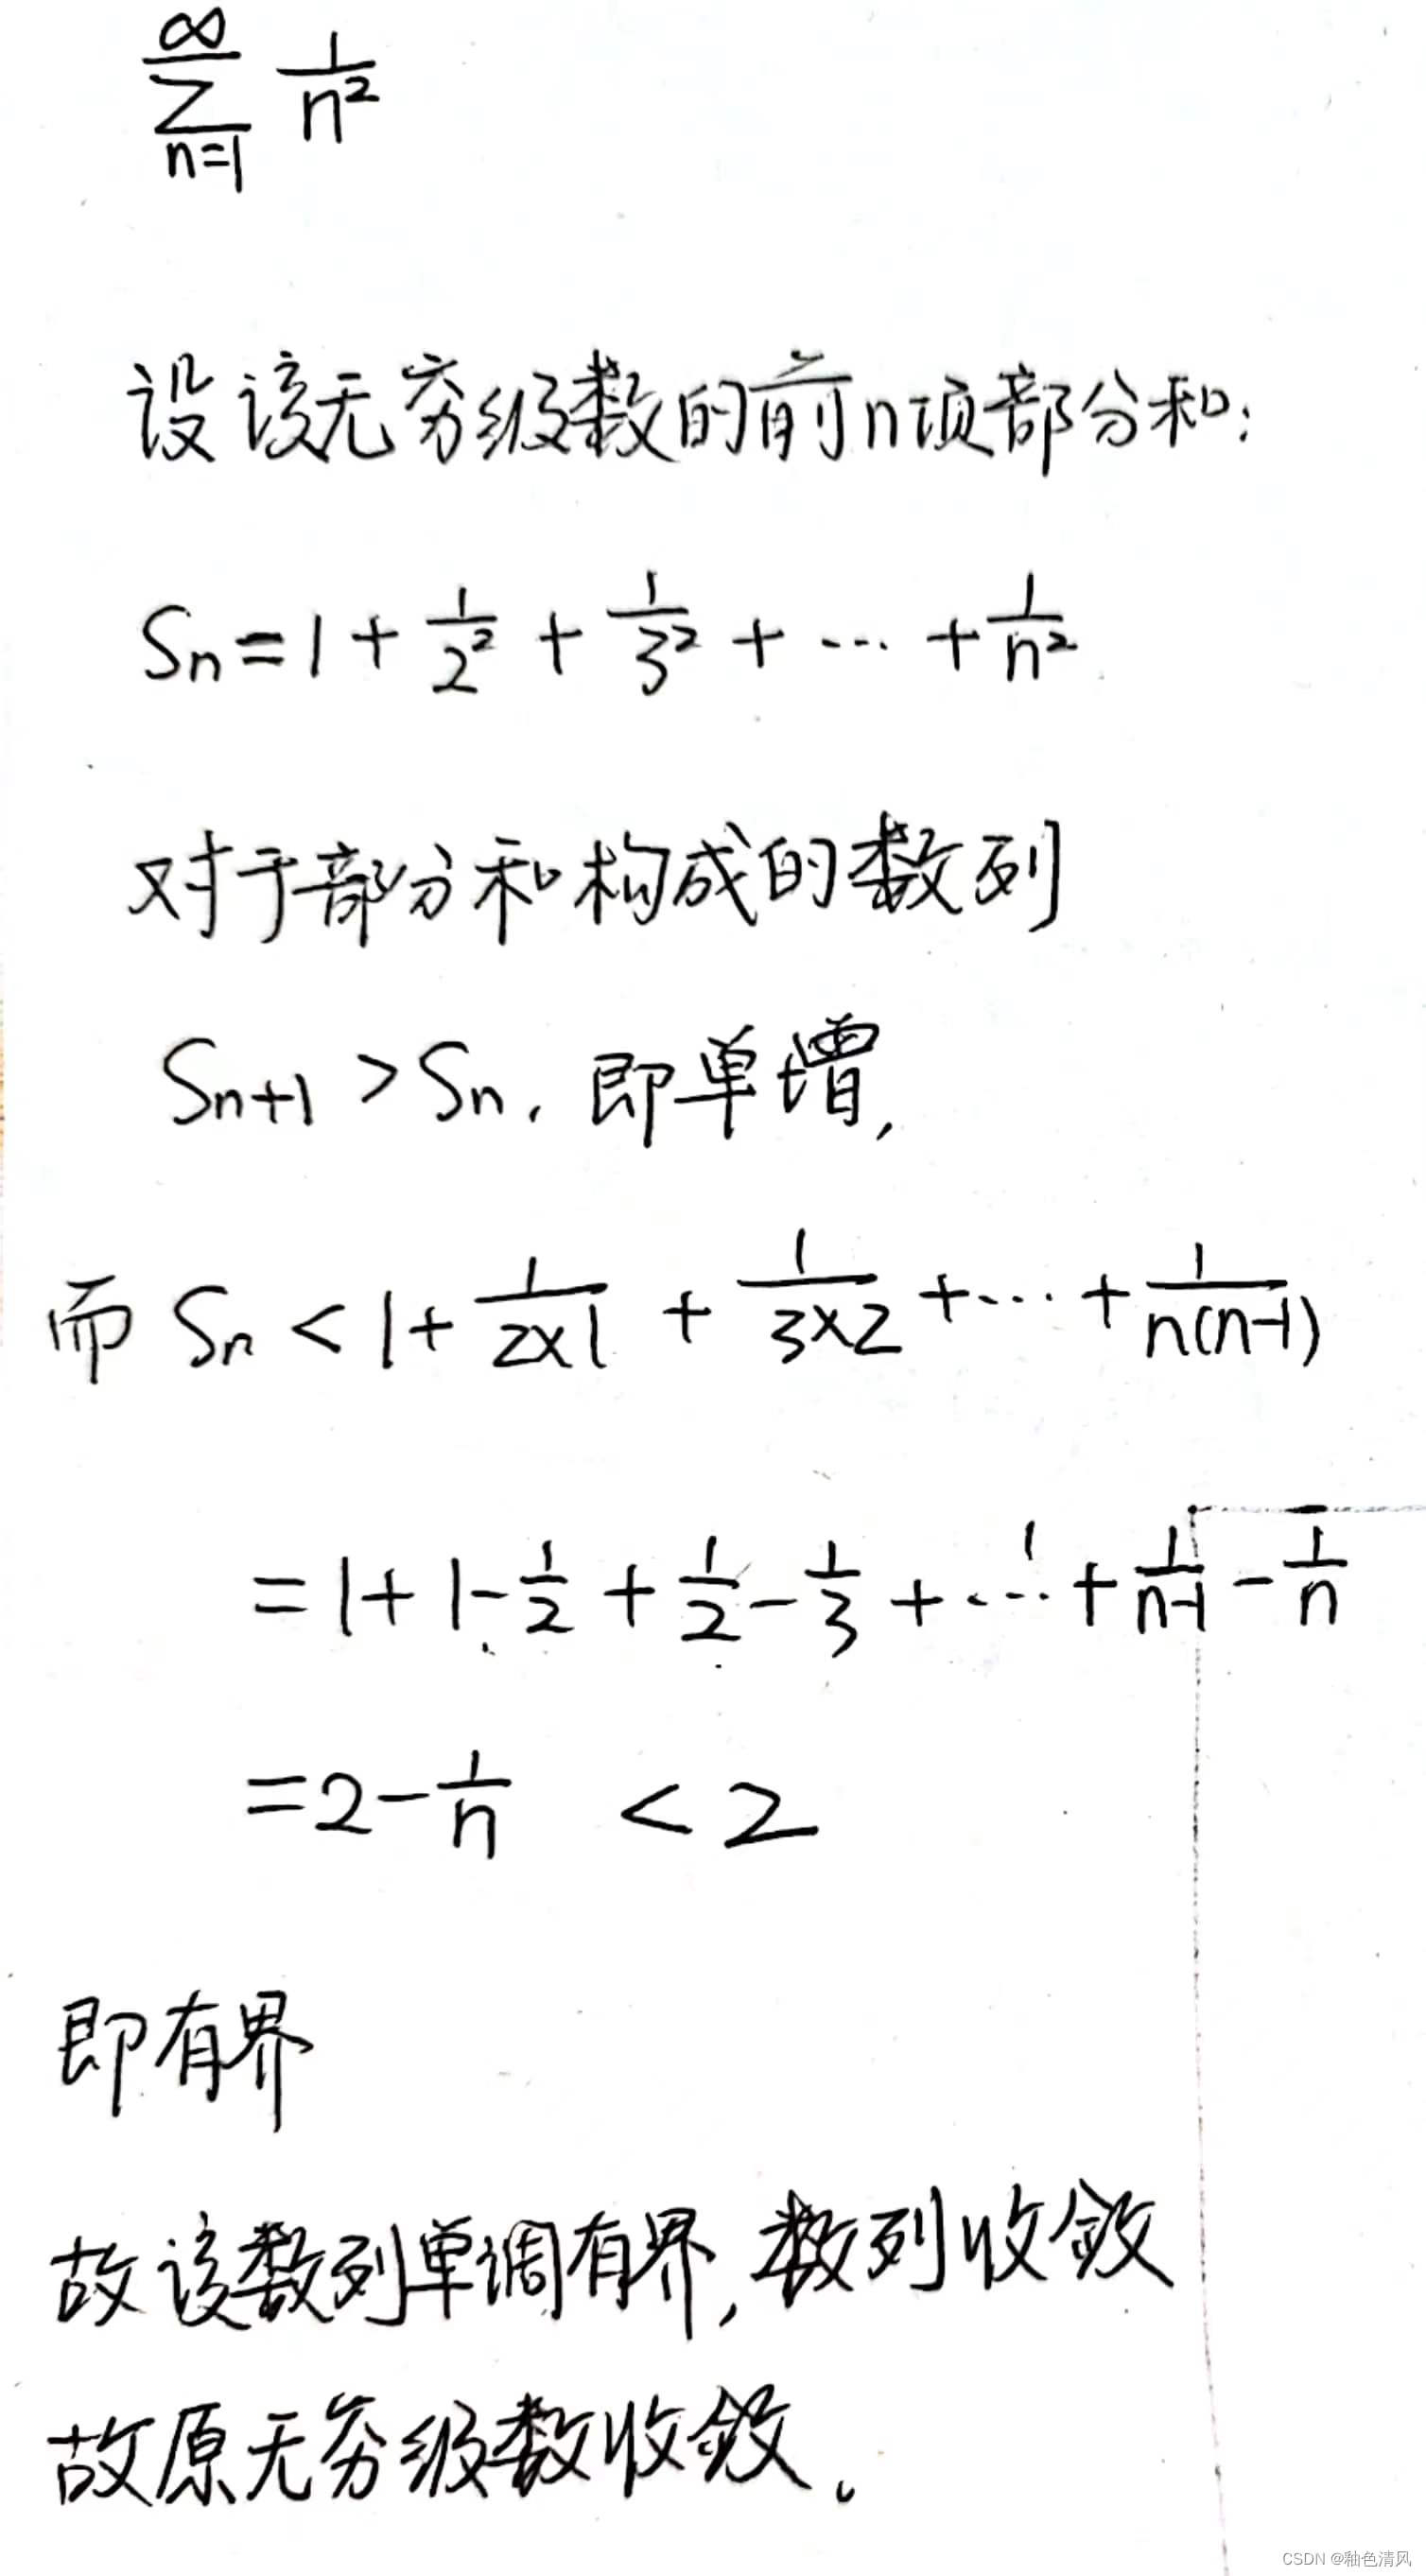 ∞
∑ 1/n²
n=1
设该无穷级数的前n项部分和:
Sn=1+1/2²+1/3²+···+1/n²
对于部分和构成的数列
Sn+1>Sn,即单增,
而 Sn<1+1/(2×1)+1/(3×2)+···+1/(n(n-1))
=1+1-1/2+1/2-1/3+···+1/(n-1)-1/n
=2-1/n <2
即有界
故该数列单调有界,数列收敛
故原无穷级数收敛。
CSDN @釉色清风